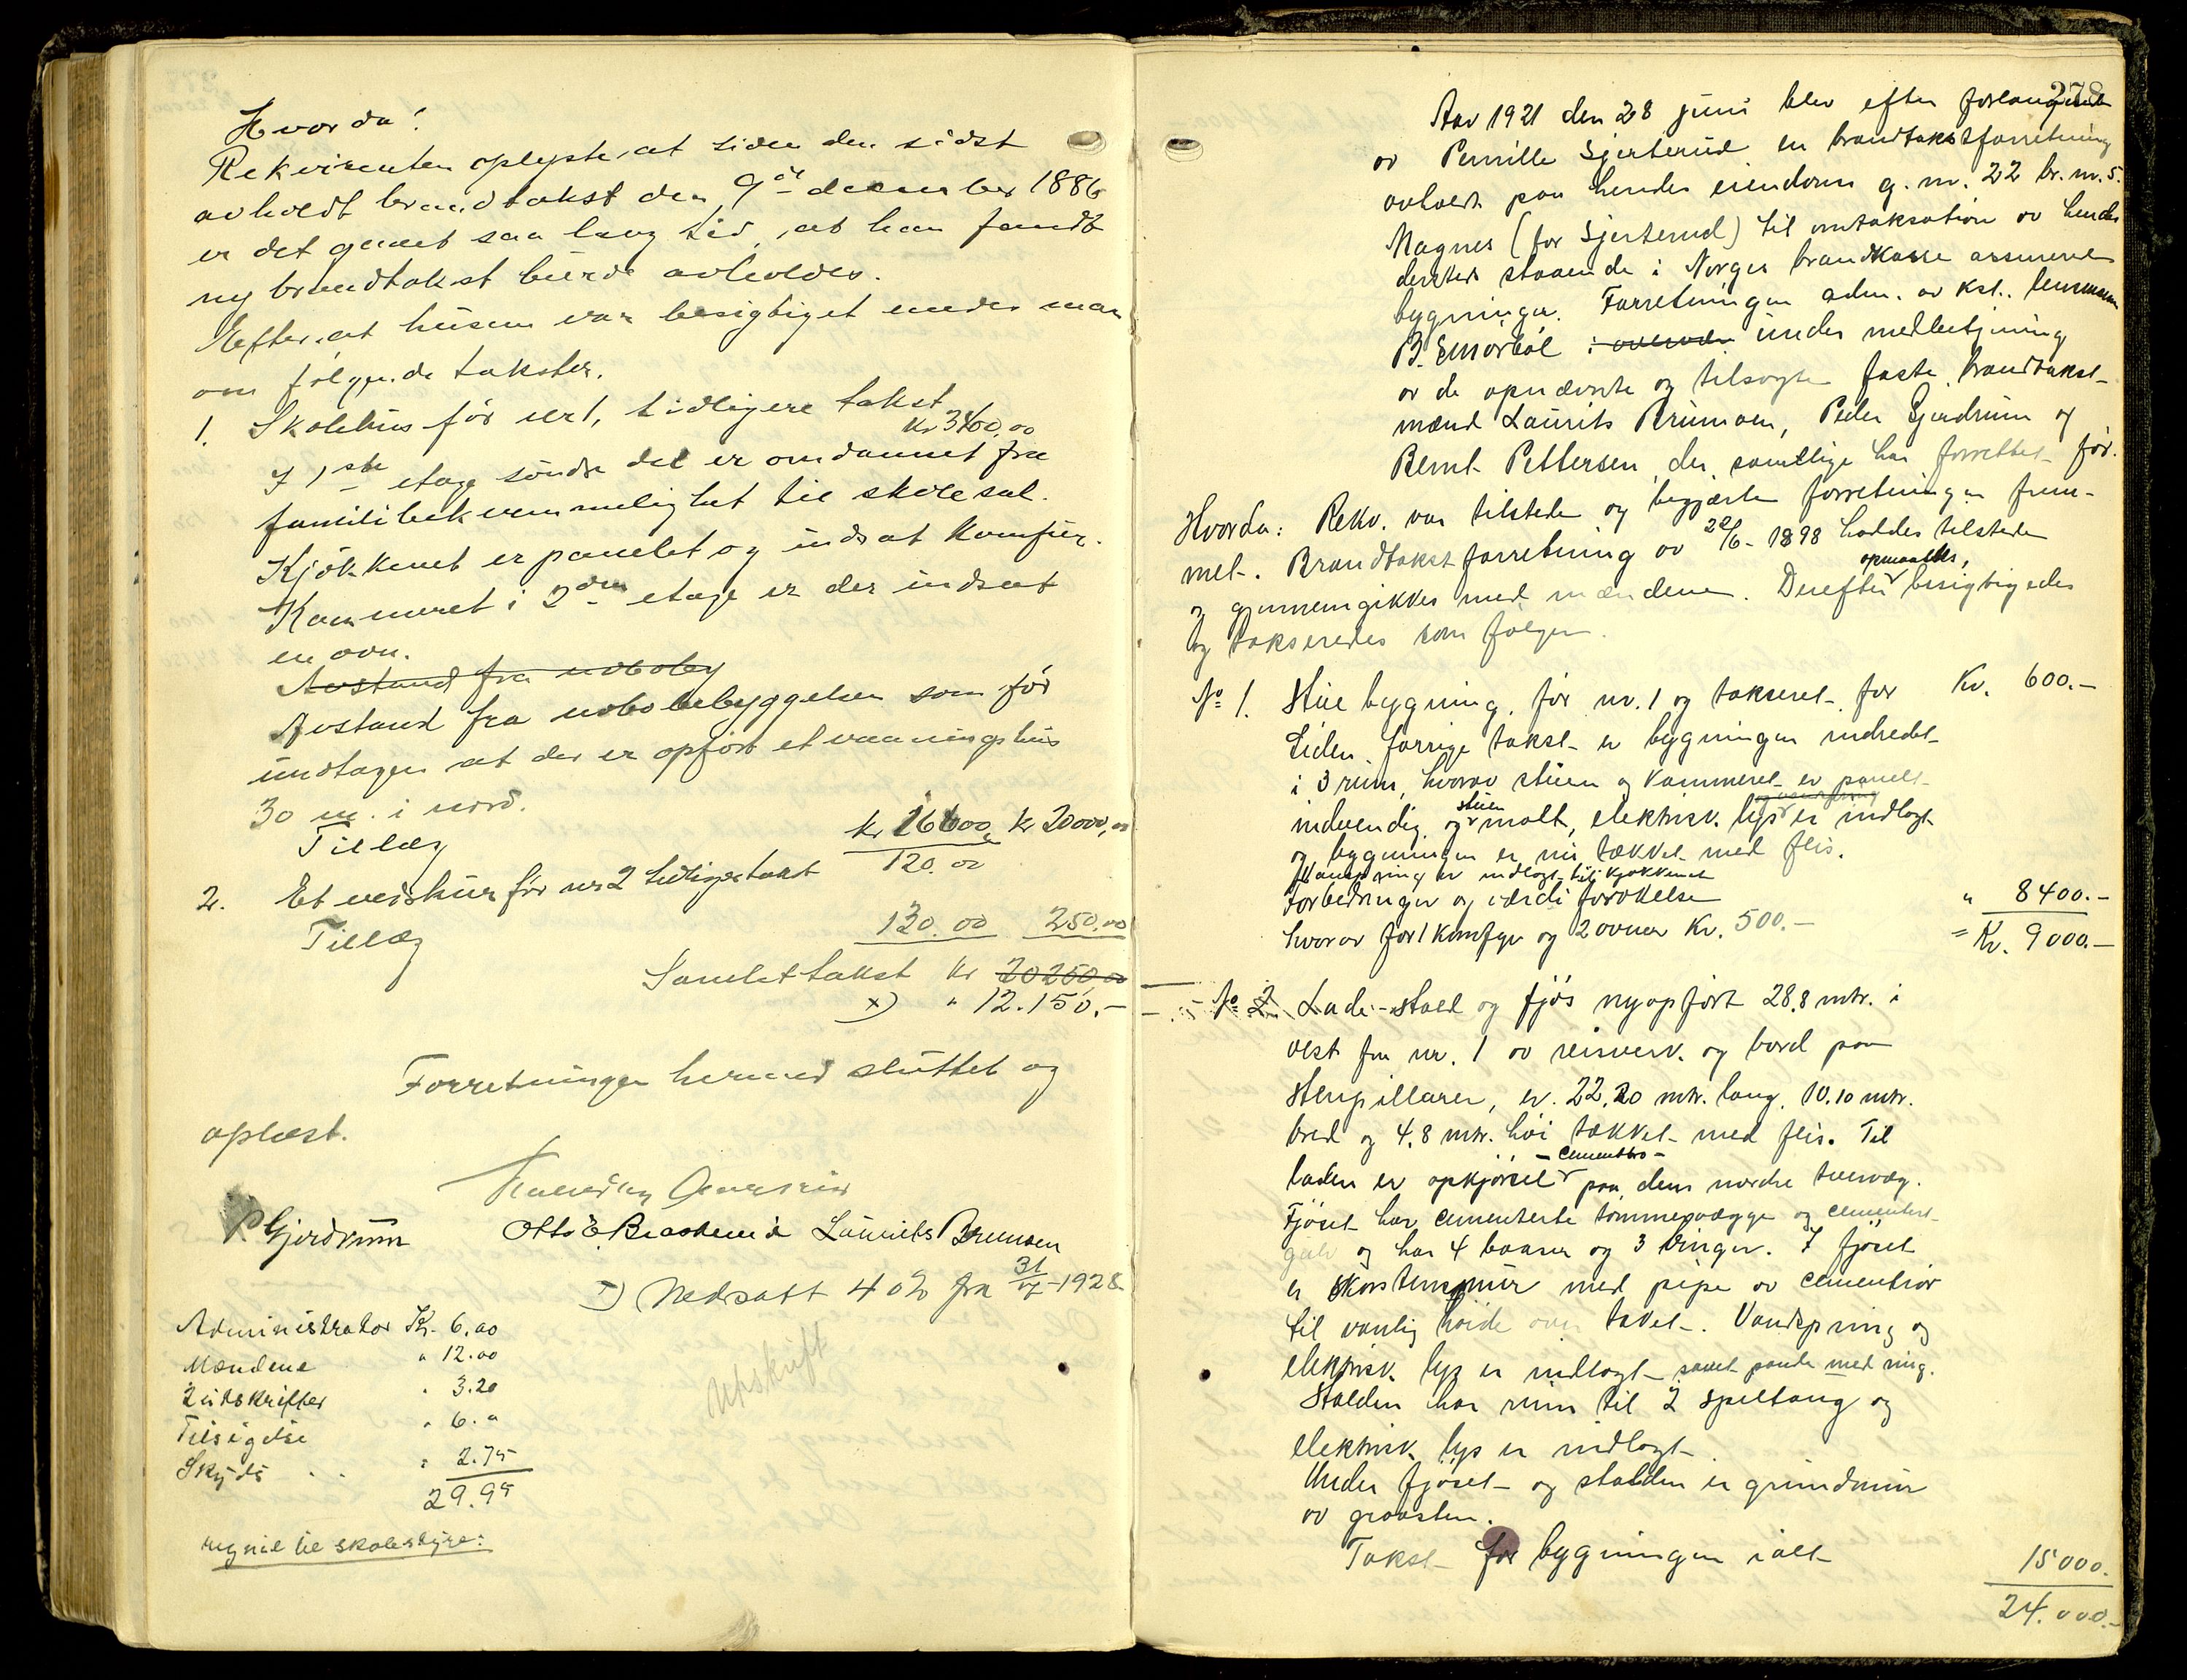 Hvorda!
Rekvirenten oplyste, at siden den sidst
avholdt brandtakst den 9de december 1886
er det gaaet saa lang tid, at han fandt
ny brandtakst burde avholdes.
Efter, at husene var besigtiget enedes man
om følgende takster.
1. Skolehus før nr 1, tidligere takst
Kr 3400,00
I 1ste etage søndre del er omdannet fra
familiebekvemmelighet til skolesal.
Kjøkkenet er panelet og indsat komfur.
Kammeret i 2den etage er der indsat
en ovn.
Avstand fra nabobeby
Avstand fra nabobebyggelsen som før
undtagen at der er opført et vaaningshus
30 m. i nord.
Tillæg kr 16600, kr 20000,00
2. Et vedskur før nr 2 tidligere takst 120.00
Tillæg 130.00 250.00
Samlet takst kr 20250,00
x) " 12.150.-
Forretningen hermed sluttet og
oplæst.
P. Gjerdrum Otto E. Braaterud Laurits Brunsen
x) Nedsatt 40% fra 31/7-1928
Utskrift
Administrator Kr. 6.00
Mændene " 12.00
2 utskrifter " 3.20
Tilsigelse " 6. "
Skyds " 2.75
29.95
regnil til skolestyre:
278
Aar 1921 den 28 juni blev efter forlangende
av Pernille Gjerterud en brandtakstforretning
avholdt paa hendes eiendom g. nr. 22 br. nr. 5.
Magnes (for Gjerterud) til omtaksation av hendes
dersteds staaende i Norges brandkasse assurerte
bygninger. Forretningen adm. av kst. lensmann
B. Emorbøl : under medbetjening
av de opnævnte og tilsagte faste brandtakst-
mænd Laurits Brunsen, Peder Gjerdrum og
Bernt Pettersen, der samtlige har forrettet før.
Hvorda: Rekv. var tilstede og begjærte forretningen frem-
met. Brandtakstforretning av 22/6- 1898 haddes tilstede
og gjennemgikkes med mændene. Derefter opmaaltes, besigtigedes
og takseredes som følger.
No 1. Stuebygning, før nr. 1 og takseret for Kr. 600.-
Siden forrige takst er bygningen indredet
i 3 rum, hvorav stuen og kammeret er panelt
indvendig og stuen malt, elektrisk lys er indlagt
og bygningen er nu tækket med flis.
Vandspring er indlagt til kjøkkenet
Forbedringer og værdi forøkelse " 8400.-
hvorav for 1 komfyr og 2 ovner Kr. 500.- = Kr. 9000.-
No 2. Lade-stald og fjøs nyopført 28,8 mtr. i
vest fra nr. 1 av reisverk og bord paa
stenpillarer, er 22,20 mtr. lang, 10.10 mtr.
bred og 4.8 mtr. høi tækket med flis. Til
laden er opkjørsel - cementbro - paa dens nordre tvervæg.
Fjøset har cementerte tømmervægge og cementert
gulv og har 4 baaser og 3 binger. I fjøset
er skorstensmur med pipe av cementrør
til vanlig høide over taket. Vandspring og
elektrisk lys er indlagt samt pande med ring.
Stalden har rum til 2 spiltaug og
elektrisk lys er indlagt.
Under fjøset og stalden er grundmur
av graasten.
Takst for bygningen ialt 15000.
24.000.-